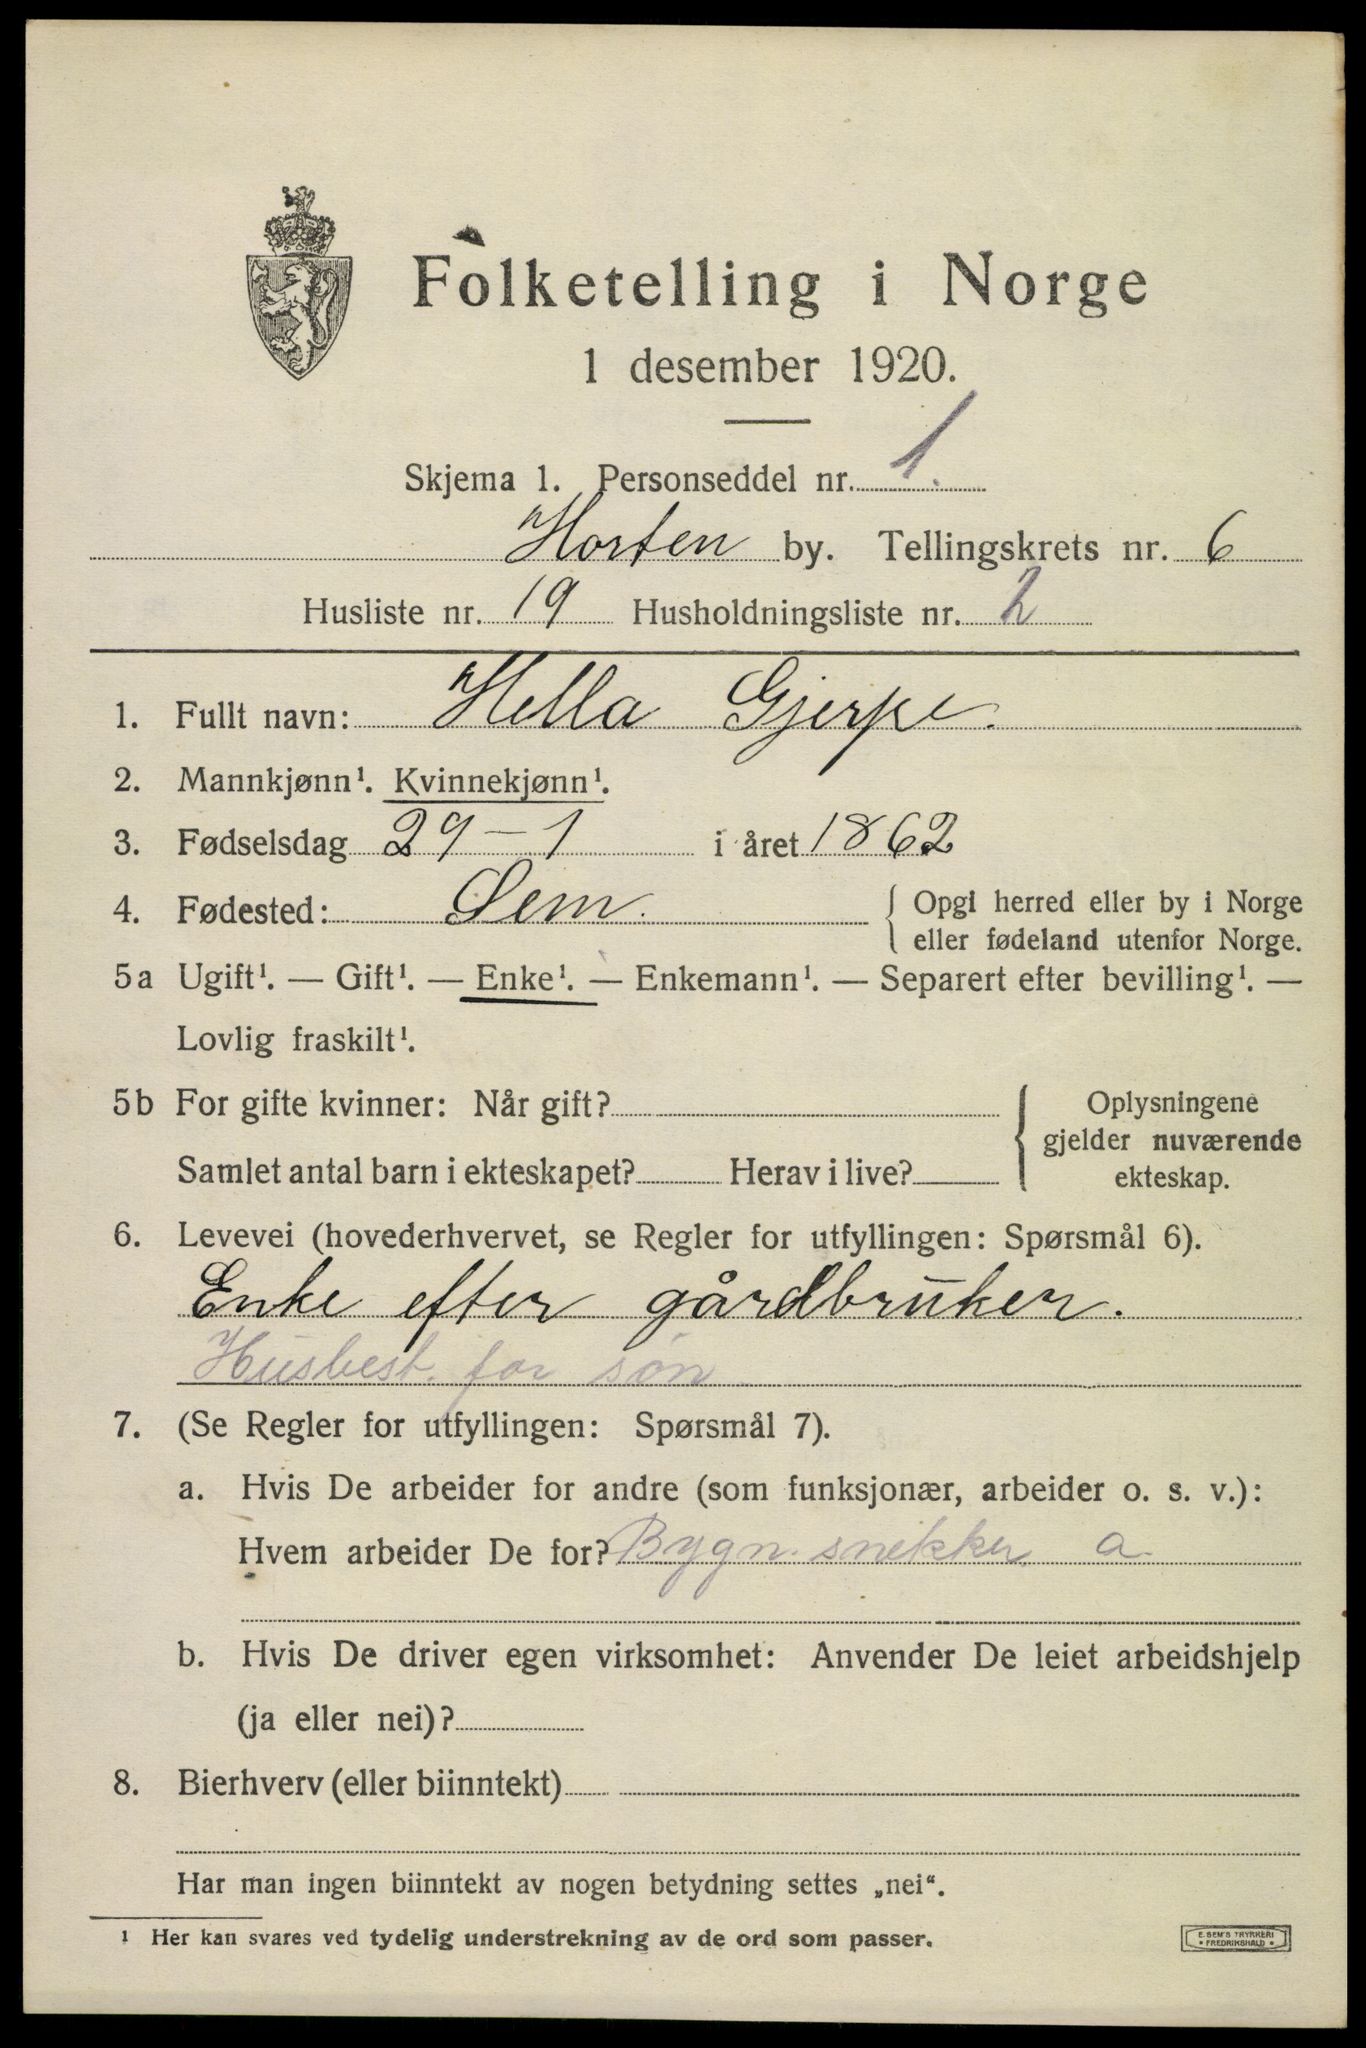 Folketelling i Norge
1 desember 1920.
Skjema 1. Personseddel nr. 1.
Horten by. Tellingskrets nr. 6
Husliste nr. 19 Husholdningsliste nr. 2
1. Fullt navn: Hella Gjerpe.
2. Mannkjønn¹. Kvinnekjønn¹.
3. Fødselsdag 29-1 i året 1862
4. Fødested: Sem. { Opgi herred eller by i Norge
eller fødeland utenfor Norge.
5a Ugift¹. — Gift¹. — Enke¹. — Enkemann¹. — Separert efter bevilling¹. —
Lovlig fraskilt¹.
5b For gifte kvinner: Når gift? { Oplysningene
gjelder nuværende
Samlet antal barn i ekteskapet? Herav i live? ekteskap.
6. Levevei (hovederhvervet, se Regler for utfyllingen: Spørsmål 6).
Enke efter gårdbruker.
Husbest. for søn
7. (Se Regler for utfyllingen: Spørsmål 7).
a. Hvis De arbeider for andre (som funksjonær, arbeider o. s. v.):
Hvem arbeider De for? Bygn. snekker a
b. Hvis De driver egen virksomhet: Anvender De leiet arbeidshjelp
(ja eller nei)?
8. Bierhverv (eller biinntekt)
Har man ingen biinntekt av nogen betydning settes „nei“.
¹ Her kan svares ved tydelig understrekning av de ord som passer.
E. SEM'S TRYKKERI
• FREDRIKSHALD •